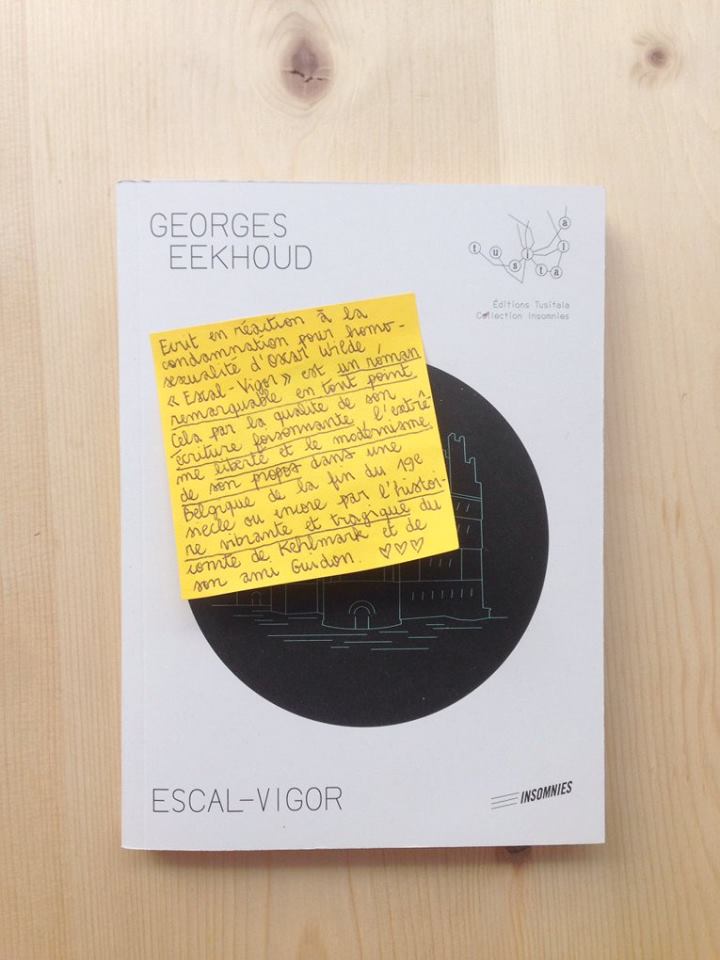 GEORGES
EEKHOUD
tusitala
Éditions Tusitala
Collection Insomnies
Ecrit en réaction à la
condamnation pour homo-
sexualité d'Oscar Wilde
« Escal-Vigor » est un roman
remarquable en tout point
Cela par la qualité de son
écriture foisonnante, l'extrê-
me liberté et le modernisme
de son propos dans une
Belgique de la fin du 19e
siècle ou encore par l'histoi-
re vibrante et tragique du
comte de Kehlmark et de
son ami Guidon. ♡♡♡
ESCAL-VIGOR
INSOMNIES